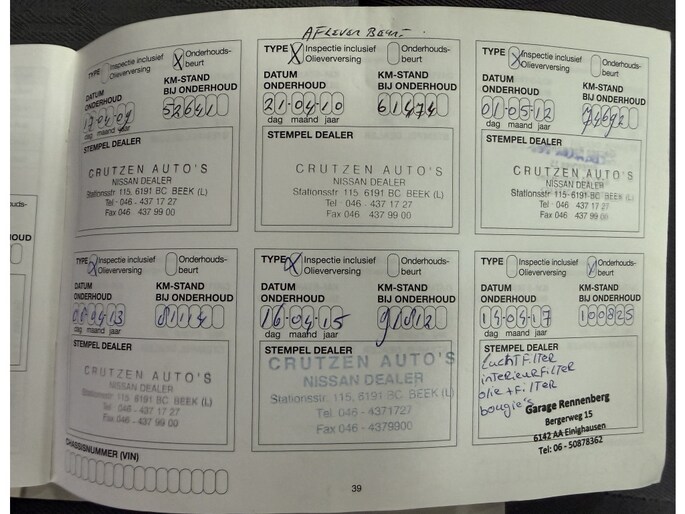 AFLEVER BEURT
TYPE Inspectie inclusief Olieverversing X Onderhouds-beurt
DATUM ONDERHOUD KM-STAND BIJ ONDERHOUD
17-04-09 52641
dag maand jaar
STEMPEL DEALER
CRUTZEN AUTO'S
NISSAN DEALER
Stationsstr. 115, 6191 BC BEEK (L)
Tel 046 - 437 17 27
Fax 046 437 99 00
TYPE X Inspectie inclusief Olieverversing Onderhouds-beurt
DATUM ONDERHOUD KM-STAND BIJ ONDERHOUD
21-04-10 61474
dag maand jaar
STEMPEL DEALER
CRUTZEN AUTO'S
NISSAN DEALER
Stationsstr. 115, 6191 BC BEEK (L)
Tel 046 - 437 17 27
Fax 046 437 99 00
TYPE X Inspectie inclusief Olieverversing Onderhouds-beurt
DATUM ONDERHOUD KM-STAND BIJ ONDERHOUD
01-05-12 74692
dag maand jaar
STEMPEL DEALER
CRUTZEN AUTO'S
NISSAN DEALER
Stationsstr. 115-6191 BC BEEK (L)
Tel 046 - 437 17 27
Fax 046 437 99 00
TYPE X Inspectie inclusief Olieverversing Onderhouds-beurt
DATUM ONDERHOUD KM-STAND BIJ ONDERHOUD
08-04-13 81114
dag maand jaar
STEMPEL DEALER
CRUTZEN AUTO'S
NISSAN DEALER
Stationsstr. 115, 6191 BC BEEK (L)
Tel 046 - 437 17 27
Fax 046 - 437 99 00
TYPE X Inspectie inclusief Olieverversing Onderhouds-beurt
DATUM ONDERHOUD KM-STAND BIJ ONDERHOUD
16-04-15 91812
dag maand jaar
STEMPEL DEALER
CRUTZEN AUTO'S
NISSAN DEALER
Stationsstr. 115, 6191 BC BEEK (L)
Tel 046 - 4371727
Fax 046 - 4379900
TYPE Inspectie inclusief Olieverversing Onderhouds-beurt
DATUM ONDERHOUD KM-STAND BIJ ONDERHOUD
14-04-17 100825
dag maand jaar
STEMPEL DEALER
LuchtFilter
interieurFilter
olie + Filter
bougie's
Garage Rennenberg
Bergerweg 15
6142 AA Einighausen
Tel: 06 - 50878362
CHASSISNUMMER (VIN)
39